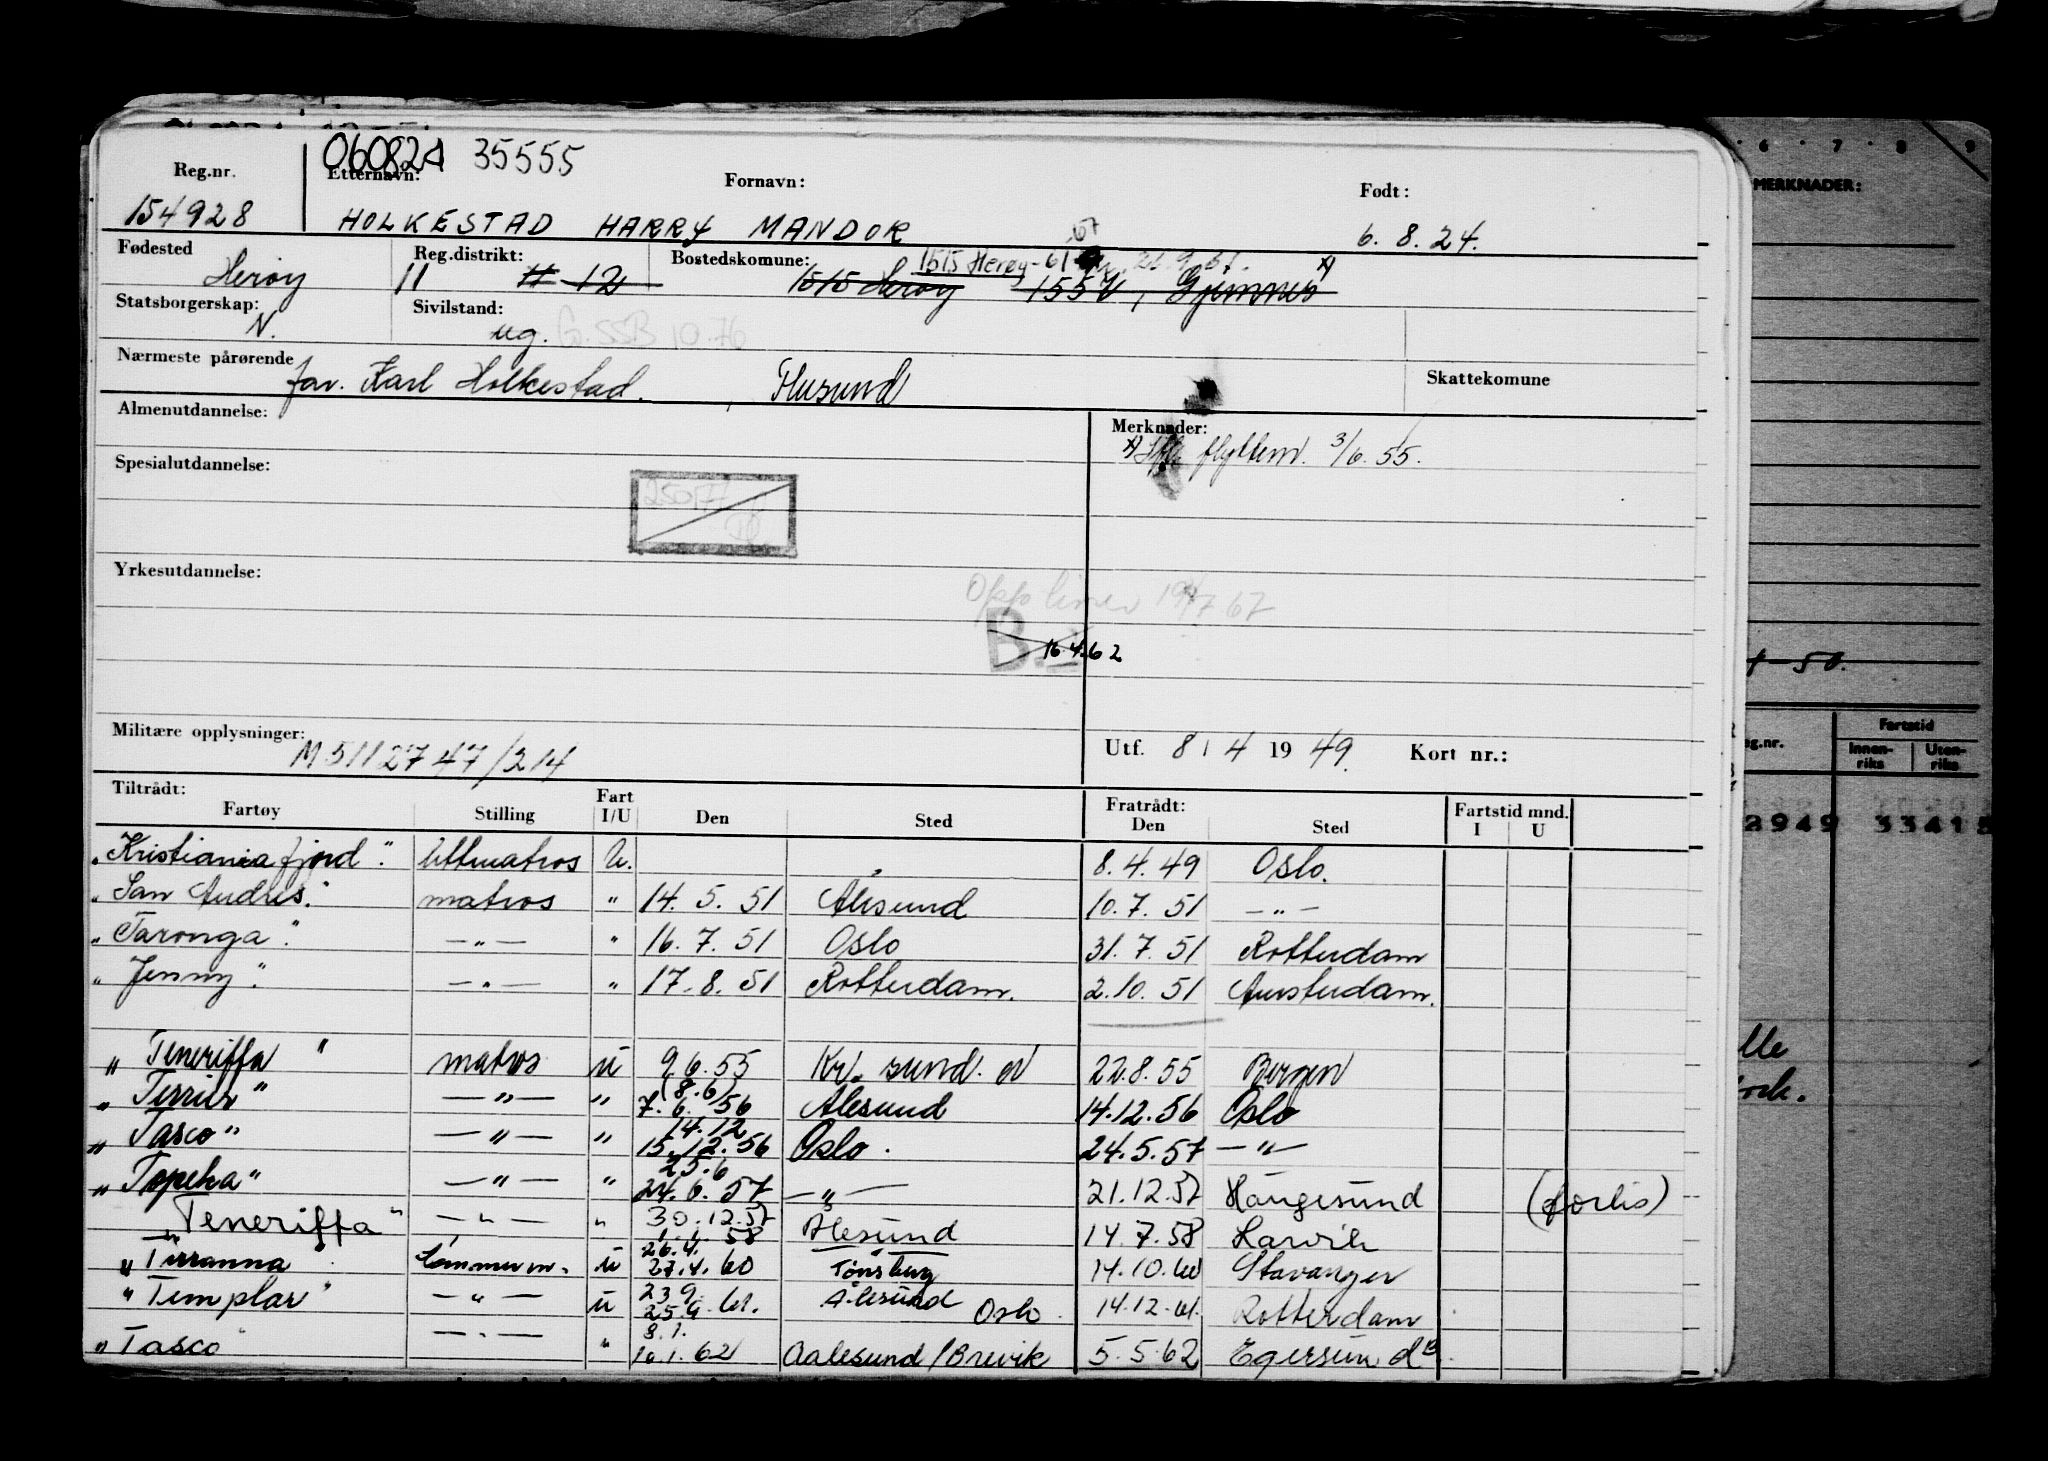 060824 35555
Reg.nr. Etternavn: Fornavn: Født:
154928 HOLKESTAD HARRY MANDOR 6. 8. 24.
67
Fødested Reg.distrikt: Bostedskomune: 1515 Herøy - 61
Herøy 11 11 12 1515 Herøy 1557, Gjemnes x)
Statsborgerskap: Sivilstand:
N. ug. G. SSB 10.76
Nærmeste pårørende Skattekomune
far. Karl Holkestad. , Flusund
Almenutdannelse: Merknader:
x) flyttem. 3/6.55.
Spesialutdannelse:
Yrkesutdannelse:
7 67
B. 16.4.62
Militære opplysninger: Utf. 8/4 1949. Kort nr.:
M 5112747/214
Tiltrådt: Fratrådt: Fartstid mnd.
Fartøy Stilling Fart I/U Den Sted Den Sted I U
"Kristianiafjord". lettmatros U. 8.4.49 Oslo.
"San Andres." matros " 14.5.51 Ålesund 10.7.51 -"-
"Taronga". -"- " 16.7.51 Oslo 31.7.51 Rotterdam
"Jenny". -"- " 17.8.51 Rotterdam. 2.10.51 Amsterdam.
"Teneriffa" matros U 9.6.55 Kr. sund. N 22.8.55 Bergen
(8.6)
"Terrier" -"- " 7.6.56 Ålesund 14.12.56 Oslo
14.12
"Tasco" -"- " 15.12.56 Oslo. 24.5.57 -"-
25.6
"Topeka" -"- " 24.6.57 -"- 21.12.57 Haugesund (forlis)
"Teneriffa" -"- " 30.12.57 Ålesund 14.7.58 Larvik
1.1.58
26.4.
"Tirranna" tømmerm. U 27.4.60 Tønsberg 14.10.60 Stavanger
23.9.
"Templar" -"- U 25.9.61. Ålesund Oslo. 14.12.61. Rotterdam
8.1.
"Tasco" -"- " 10.1.62 Aalesund/Brevik 5.5.62 Egersund
6 7 8 9
MERKNADER:
-50.
Fartstid
g.nr. Innenriks Utenriks
2949 33418